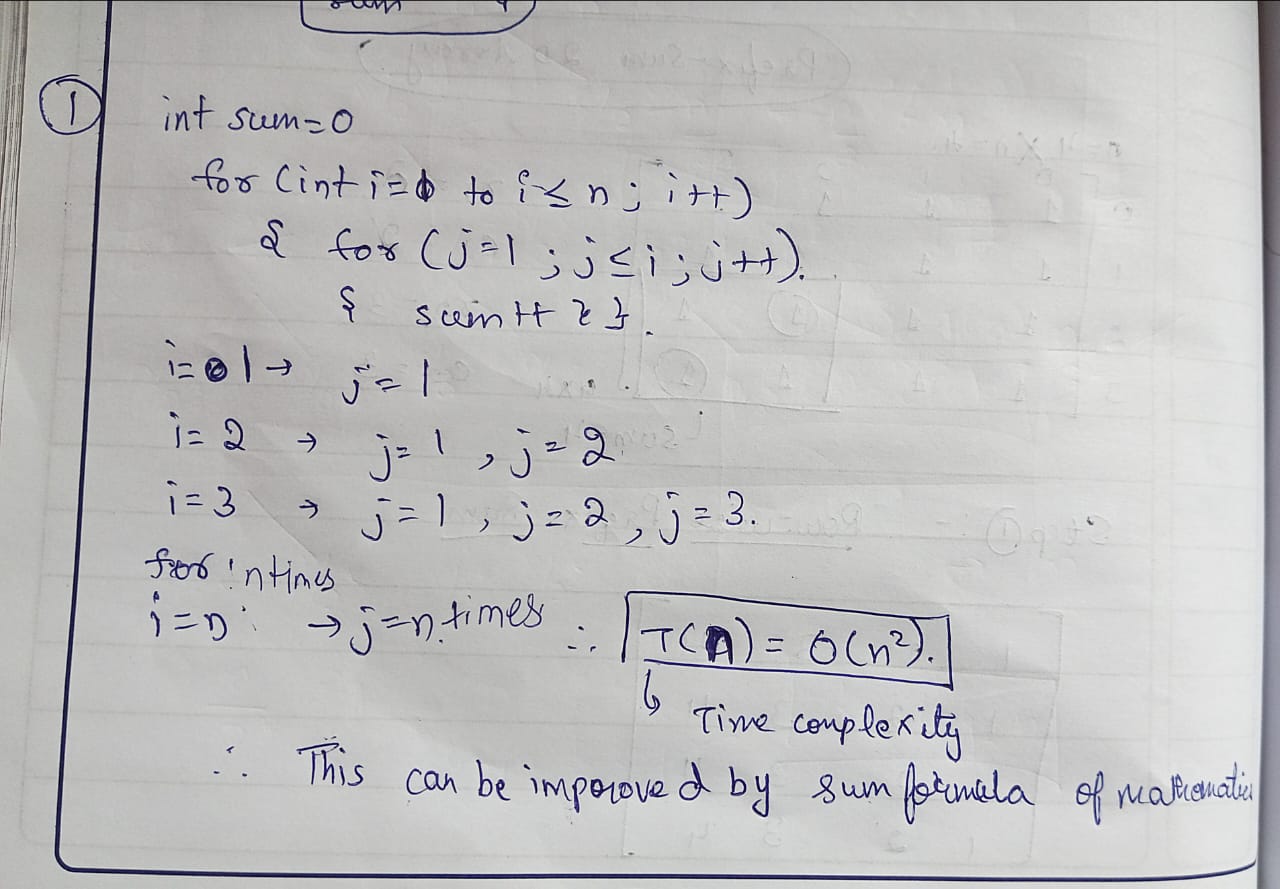 sum
①
int sum=0
for (int i=1 to i≤n; i++)
{ for (j=1; j≤i; j++).
{ sum++ } }.
i=1 → j=1
i=2 → j=1, j=2
i=3 → j=1, j=2, j=3.
for n times
i=n → j=n times ∴ T(n) = O(n²).
↳ Time complexity
∴ This can be improved by sum formula of mathematics